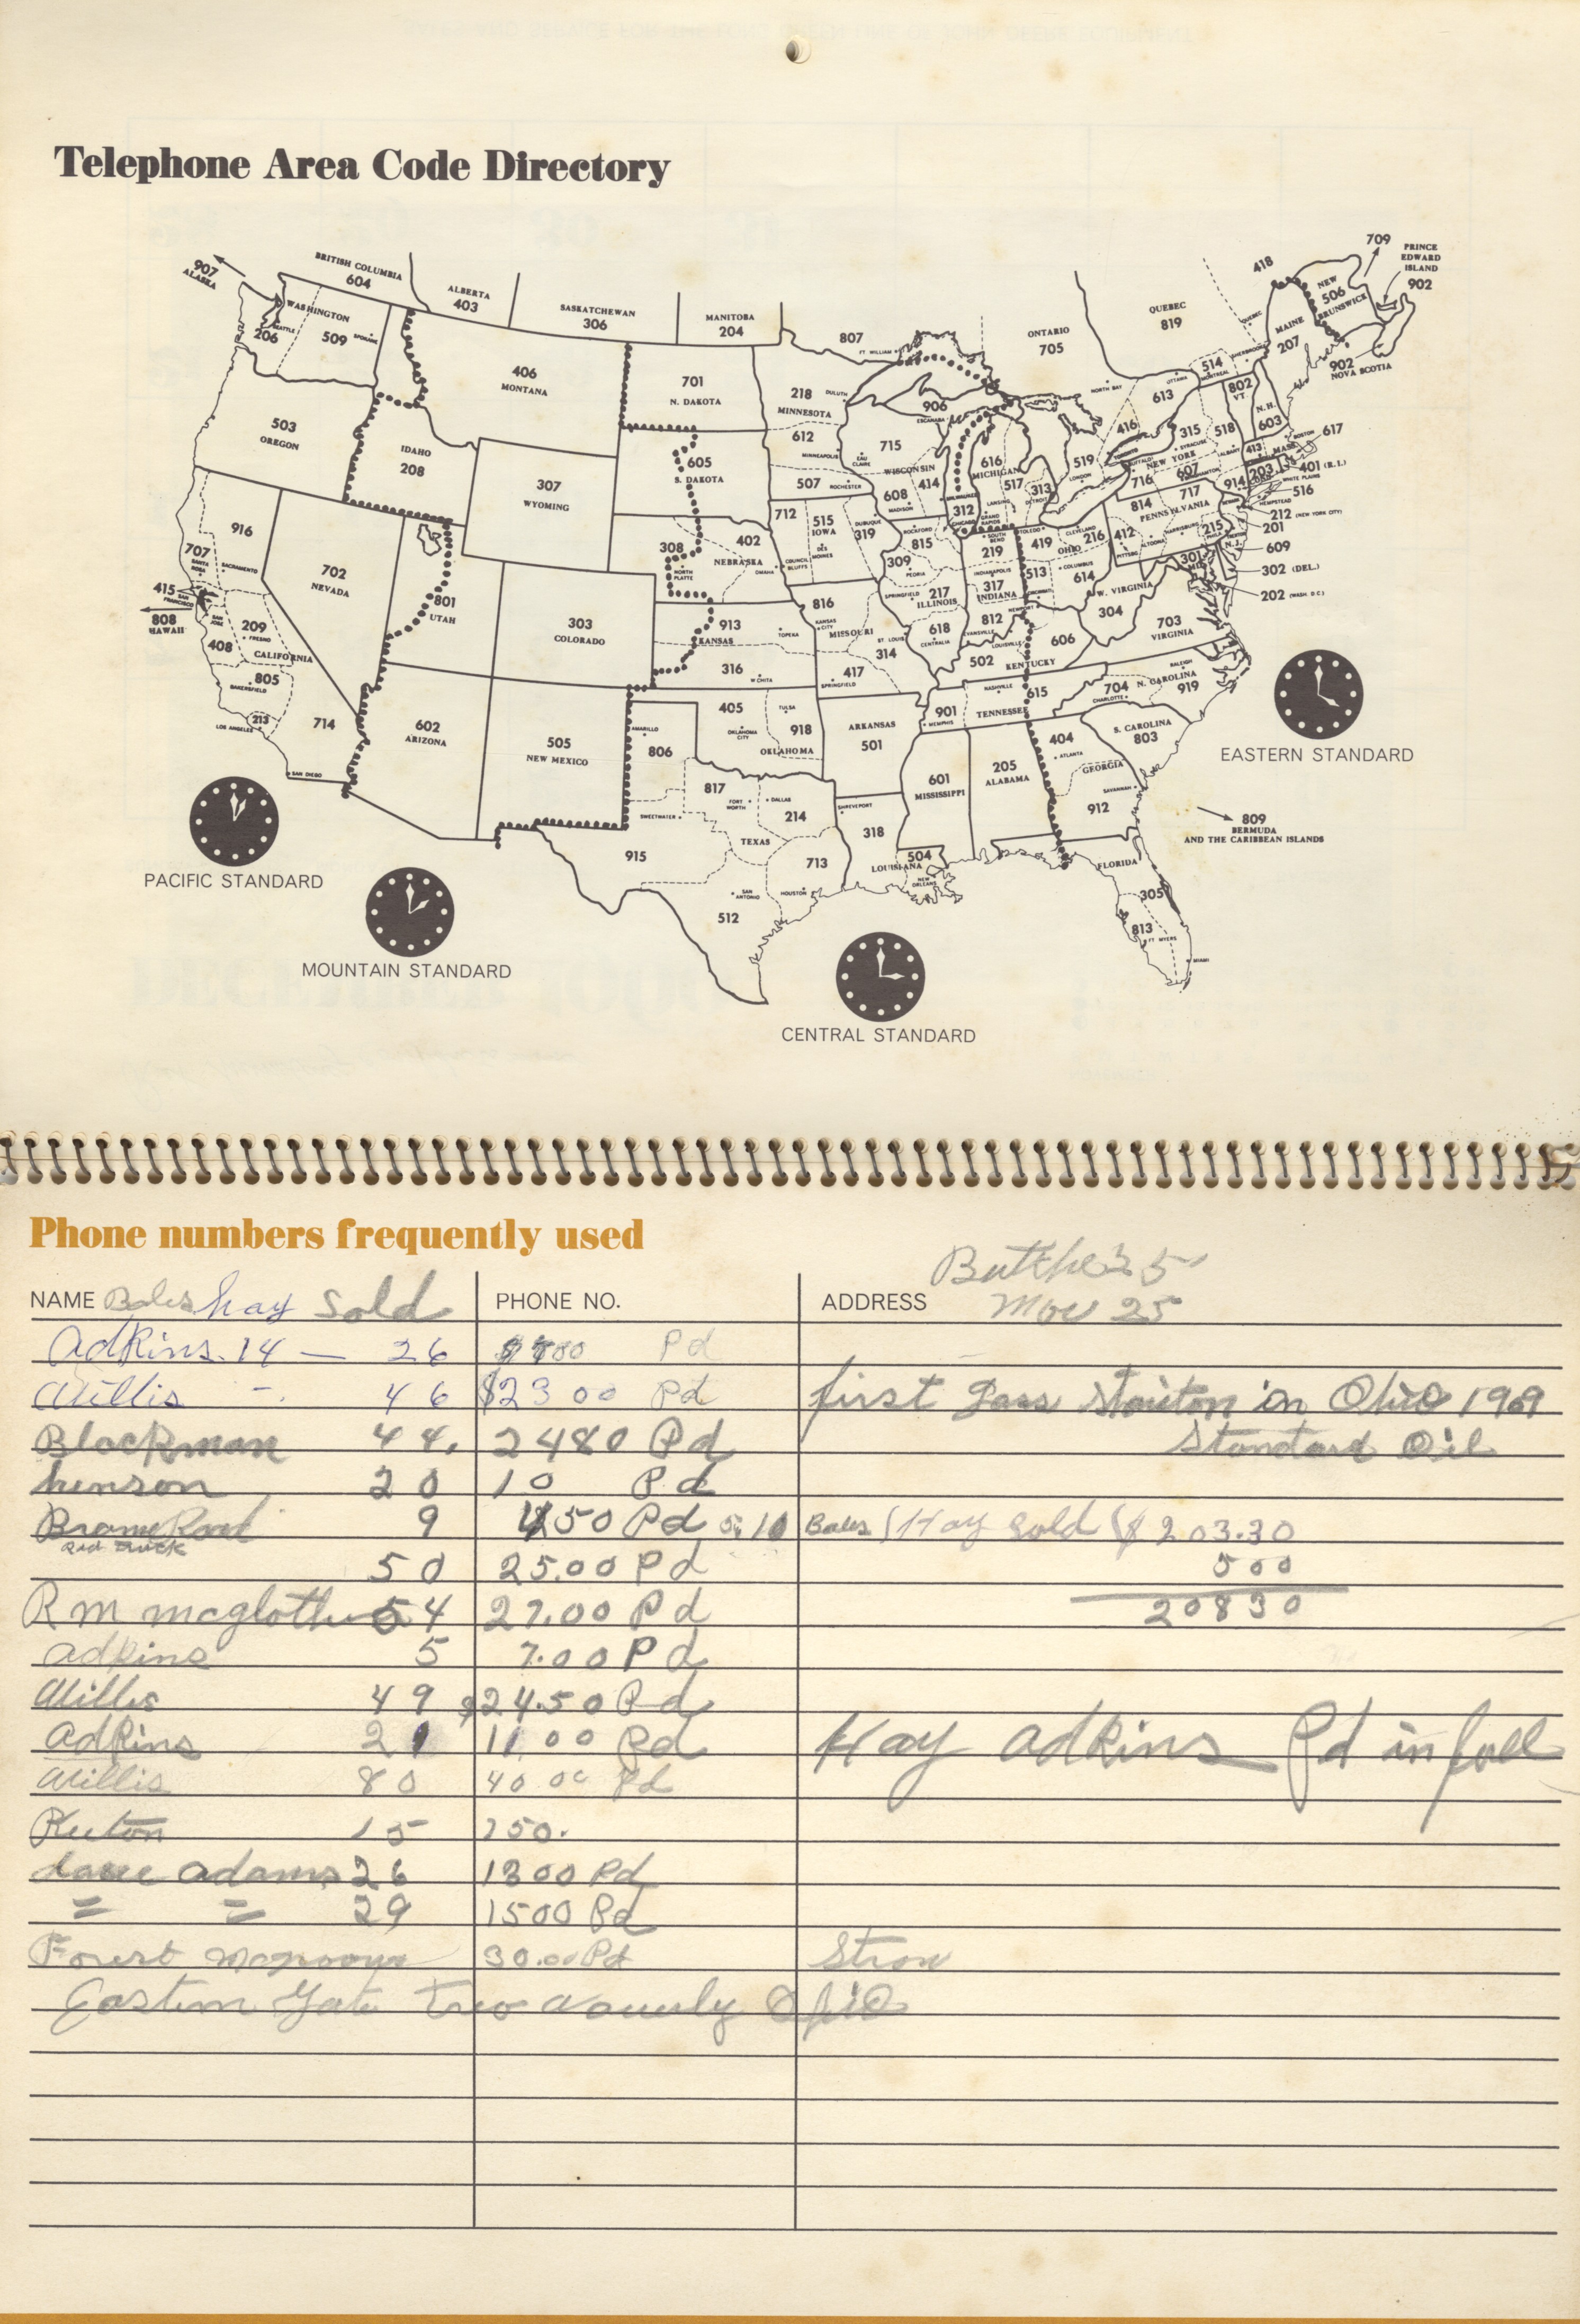 Telephone Area Code Directory
907 ALASKA
BRITISH COLUMBIA 604
ALBERTA 403
SASKATCHEWAN 306
MANITOBA 204
807 FT. WILLIAM
ONTARIO 705
QUEBEC 819
418
709
PRINCE EDWARD ISLAND 902
NEW BRUNSWICK 506
MAINE 207
902 NOVA SCOTIA
WASHINGTON
206 SEATTLE
509 SPOKANE
406 MONTANA
701 N. DAKOTA
218 DULUTH
MINNESOTA
612 MINNEAPOLIS
507 ROCHESTER
906 ESCANABA
715 EAU CLAIRE
WISCONSIN
608 MADISON
414 MILWAUKEE
616 GRAND RAPIDS
MICHIGAN
517 LANSING
313 DETROIT
519 LONDON
416
NORTH BAY
OTTAWA
613
514 MONTREAL
SHERBROOKE
QUEBEC
802 VT.
N.H. 603
315 SYRACUSE
518 ALBANY
NEW YORK
607 BINGHAMTON
716 BUFFALO
413 MASS.
BOSTON 617
203
401 (R.I.)
914 WHITE PLAINS
516 HEMPSTEAD
212 (NEW YORK CITY)
201
N.J.
609
302 (DEL.)
202 (WASH. D.C.)
503 OREGON
IDAHO 208
307 WYOMING
605 S. DAKOTA
308 NORTH PLATTE
402 OMAHA
NEBRASKA
712 COUNCIL BLUFFS
515 IOWA DES MOINES
319 DUBUQUE
815 ROCKFORD
312 CHICAGO
309 PEORIA
217 SPRINGFIELD
ILLINOIS
618 CENTRALIA
219 SOUTH BEND
INDIANAPOLIS 317
INDIANA
812 EVANSVILLE
419 TOLEDO
216 CLEVELAND
OHIO
614 COLUMBUS
513
412 PITTSBG.
814 ALTOONA
717 HARRISBURG
215
PENNSYLVANIA
301 MD.
W. VIRGINIA 304
703 VIRGINIA
916 SACRAMENTO
707 SANTA ROSA
415 SAN FRANCISCO
808 HAWAII
SAN JOSE
408
209 FRESNO
CALIFORNIA
805 BAKERSFIELD
213 LOS ANGELES
714
SAN DIEGO
702 NEVADA
801 UTAH
303 COLORADO
913 TOPEKA
KANSAS
316 WICHITA
816 KANSAS CITY
MISSOURI
ST. LOUIS 314
417 SPRINGFIELD
606
502 LOUISVILLE
KENTUCKY
NASHVILLE
615
TENNESSEE
901 MEMPHIS
704 CHARLOTTE
N. CAROLINA
RALEIGH 919
S. CAROLINA 803
602 ARIZONA
505 NEW MEXICO
AMARILLO 806
405 OKLAHOMA CITY
TULSA 918
OKLAHOMA
ARKANSAS 501
601 MISSISSIPPI
205 ALABAMA
404 ATLANTA
GEORGIA
SAVANNAH 912
817 FORT WORTH
DALLAS 214
SWEETWATER
TEXAS
915
713 HOUSTON
SAN ANTONIO
512
SHREVEPORT 318
LOUISIANA
504 NEW ORLEANS
FLORIDA
305
813
FT. MYERS
MIAMI
809 BERMUDA AND THE CARIBBEAN ISLANDS
EASTERN STANDARD
PACIFIC STANDARD
MOUNTAIN STANDARD
CENTRAL STANDARD
Phone numbers frequently used
NAME Bales hay Sold PHONE NO. ADDRESS
Nov 25
Adkins. 14 — 26 Pd
Willis - 46 $23 00 Pd first Gass in Ohio 1969
Blackman 44. 2480 Pd Standard Oil
henson 20 10 Pd
9 450 Pd 5. 10 Bales Hay Sold $203.30
red truck
50 25.00 Pd 500
R m mcglothen 54 27.00 Pd 20830
adkins 5 7.00 Pd
Willis 49 $24.50 Pd
adkins 21 11.00 Pd Hay adkins Pd in full
Willis 80 40 00 Pd
15 750.
dave adams 26 1300 Pd
= = 29 1500 Pd
30.00 Pd
Eastern Gate